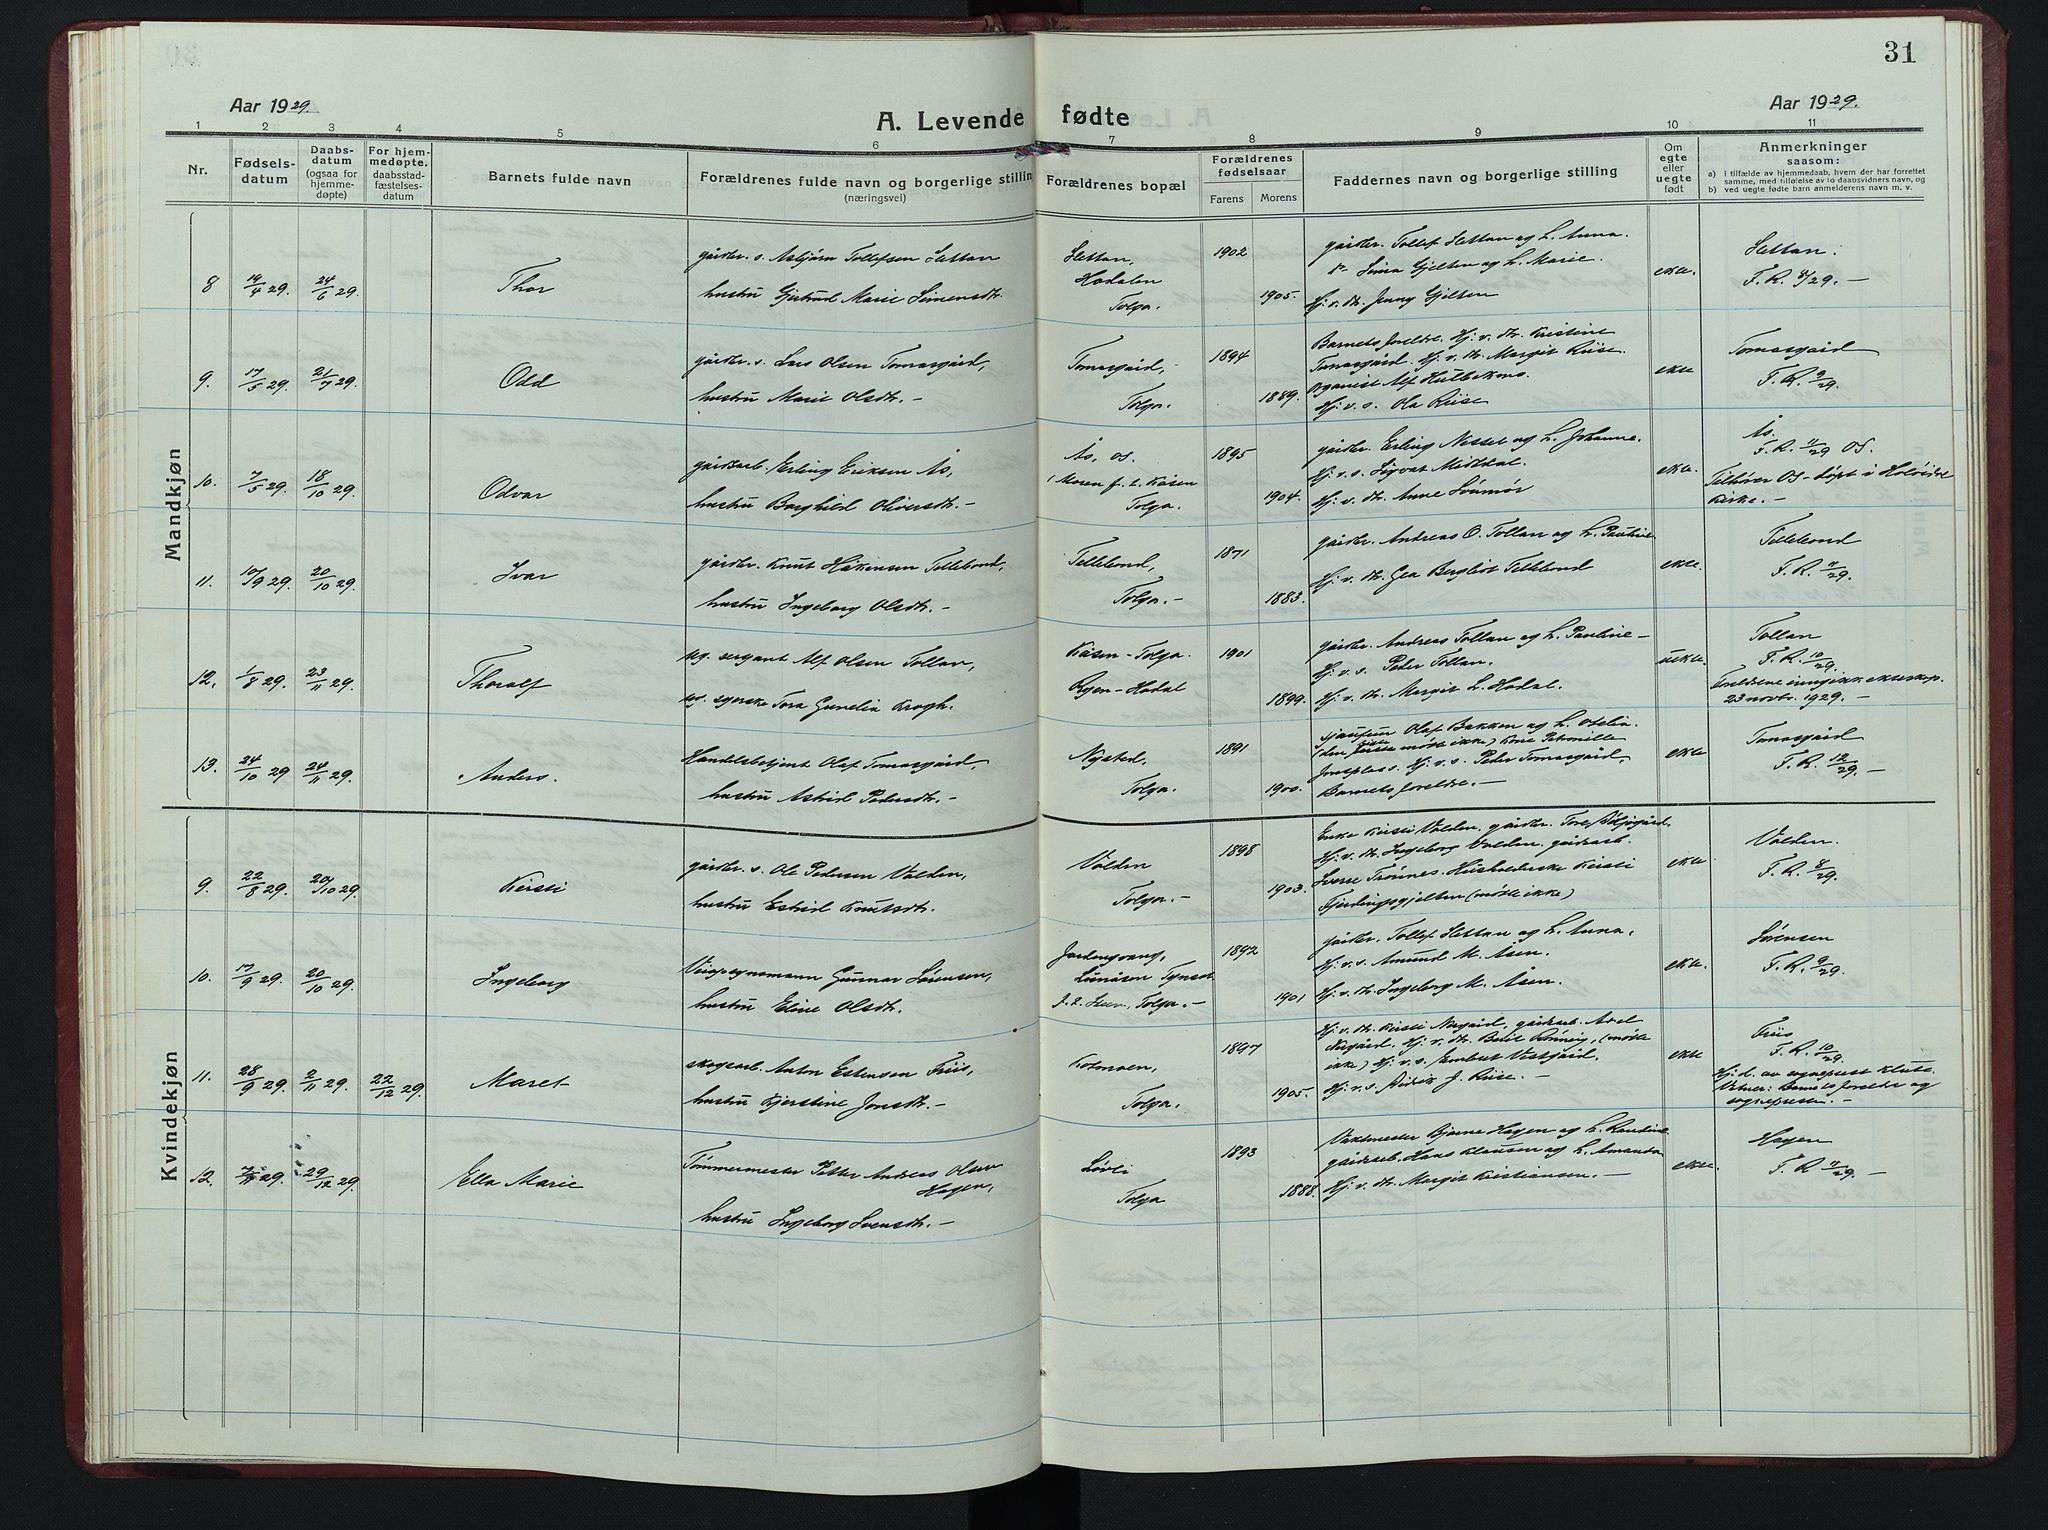 31
Aar 1929.
A. Levende fødte
Aar 1929.
1 2 3 4 5 6 7 8 9 10 11
Nr.
Fødselsdatum
Daabsdatum (ogsaa for hjemmedøpte)
For hjemmedøpte. daabsstadfæstelsesdatum
Barnets fulde navn
Forældrenes fulde navn og borgerlige stilling
(næringsvei)
Forældrenes bopæl
Forældrenes fødselsaar
Farens Morens
Faddernes navn og borgerlige stilling
Om egte eller uegte født
Anmerkninger
saasom:
a) i tilfælde av hjemmedaab, hvem der har forrettet samme, med tilføielse av to daabsvidners navn, og
b) ved uegte fødte barn anmelderens navn m. v.
Mandkjøn
8 19/4 29. 24/6 29. Thor
gårdbr. s. Asbjørn Tollefsen Slettan
hustru Gjertrud Marie Simensdtr.
Slettan, Hodalen Tolga.
1902 1905.
gårdbr. Tollef Slettan og h. Anna.
do Simen Gjelten og h. Marie.
Hj. v. dtr. Jenny Gjelten
ekte.
Slettan:
F. R. 8/29. -
9. 17/5 29. 21/7 29. Odd
gårdbr. s. Lars Olsen Tomasgård,
hustru Marie Olsdtr. -
Tomasgård, Tolga.
1894 1889.
Barnets foreldre. Hj. v. dtr. Kristine
Tomasgård. Hj. v. dtr. Margit Riise.
Organist Alf Hulbekmo.
Hj. v. s. Ola Riise
ekte
Tomasgård
F. R. 9/29.
10. 7/5 29. 18/10 29. Odvar
gårdsarb. Erling Eriksen Ås,
hustru Borghild Oliversdtr. -
Ås, Os.
Moren f. t. Kåsen
Tolga.
1895 1904.
gårdbr. Erling Nesset og h. Johanne.
Hj. v. s. Sigvat Midtdal.
Hj. v. dtr. Anne
ekte.
Ås.
F. R. 11/29 Os.
Tilhører Os - døpt i Holøidal
kirke. -
11. 10/9 29. 20/10 29. Ivar
gårdbr. Knut Håkensen Tellebond,
hustru Ingeborg Olsdtr. -
Tellebond,
Tolga. -
1871 1883.
gårdbr. Andreas O. Tollan og h. Pauline
Hj. v. dtr. Gea Bergliot Tellebond
ekte.
Tellebond
F. R. 11/29.
12. 1/8 29. 23/11 29. Thoralf
ug. sergant Alf Olsen Tollan,
ug. syerske Tora Gunelia Krogh.
Kåsen - Tolga.
Ryen - Hodal
1901 1899.
gårdbr. Andreas Tollan og h. Pauline -
Hj. v. s. Peder Tollan.
Hj. v. dtr. Margit L. Hodal.
uekte.
Tollan
F. R. 10/29.
Foreldrene inngikk ekteskap.
23 novbr. 1929. -
13. 24/10 29 24/11 29. Anders.
Handelsbetjent Olaf Tomasgård,
hustru Astrid Pedersdtr. -
Nysted,
Tolga.
1891 1900.
Olaf Bakken og h. Otelia.
møtte ikke) Petronille
Hj. v. s. Peder Tomasgård,
Barnets foreldre. -
ekte
Tomasgård
F. R. 12/29. -
Kvindekjøn
9. 22/8 29. 20/10 29. Kirsti
gårdbr. s. Ole Pedersen Volden,
hustru Estrid Knutsdtr.
Volden
Tolga. -
1898 1903.
Enke Kirsti Volden. gårdbr. Tore
Hj. v. dtr. Ingeborg Volden. gårdsarb.
Sverre Trønnes. Husholderske Kirsti
Fjerdingsgjelten (møtte ikke)
ekte
Volden.
F. R. 8/29.
10. 17/9 29. 20/10 29. Ingeborg
Veiopsynsmann Gunnar Sørensen,
hustru Eline Olsdtr.
Tynset
Tolga. -
1892 1901
gårdbr. Tollef Slettan og h. Anna.
Hj. v. s. Amund M. Åsen.
Hj. v. dtr. Ingeborg M. Åsen.
ekte.
Sørensen
F. R. 9/29.
11. 28/9 29. 2/11 29. 22/12 29. Maret
skogsarb. Anton Estensen Friis,
hustru Kjerstine Jonsdtr. -
Kotmoen,
Tolga.
1897 1905.
Hj. v. dtr. Kirsti Nergård, gårdsarb.
Nergård. Hj. v. dtr. Berit Rønning, (møtte
ikke) Hj. v. s. Embret Vestgård.
Hj. v. s. J. Riise. -
ekte
Friis
F. R. 10/29.
Hj. d. av sogneprest
Vitner: Barnets foreldre og
sogneprest. -
12. 7/11 29. 29/12 29. Ella Marie
Tømmermester Petter Andreas Olsen
Hagen,
hustru Ingeborg Svensdtr. -
Løvli
Tolga
1893 1888.
Vaktmester Bjarne Hagen og h.
gårdsarb. Hans Klausen og h. Amanda
Hj. v. dtr. Margit Kristiansen. -
ekte.
Hagen
F. R. 11/29. -